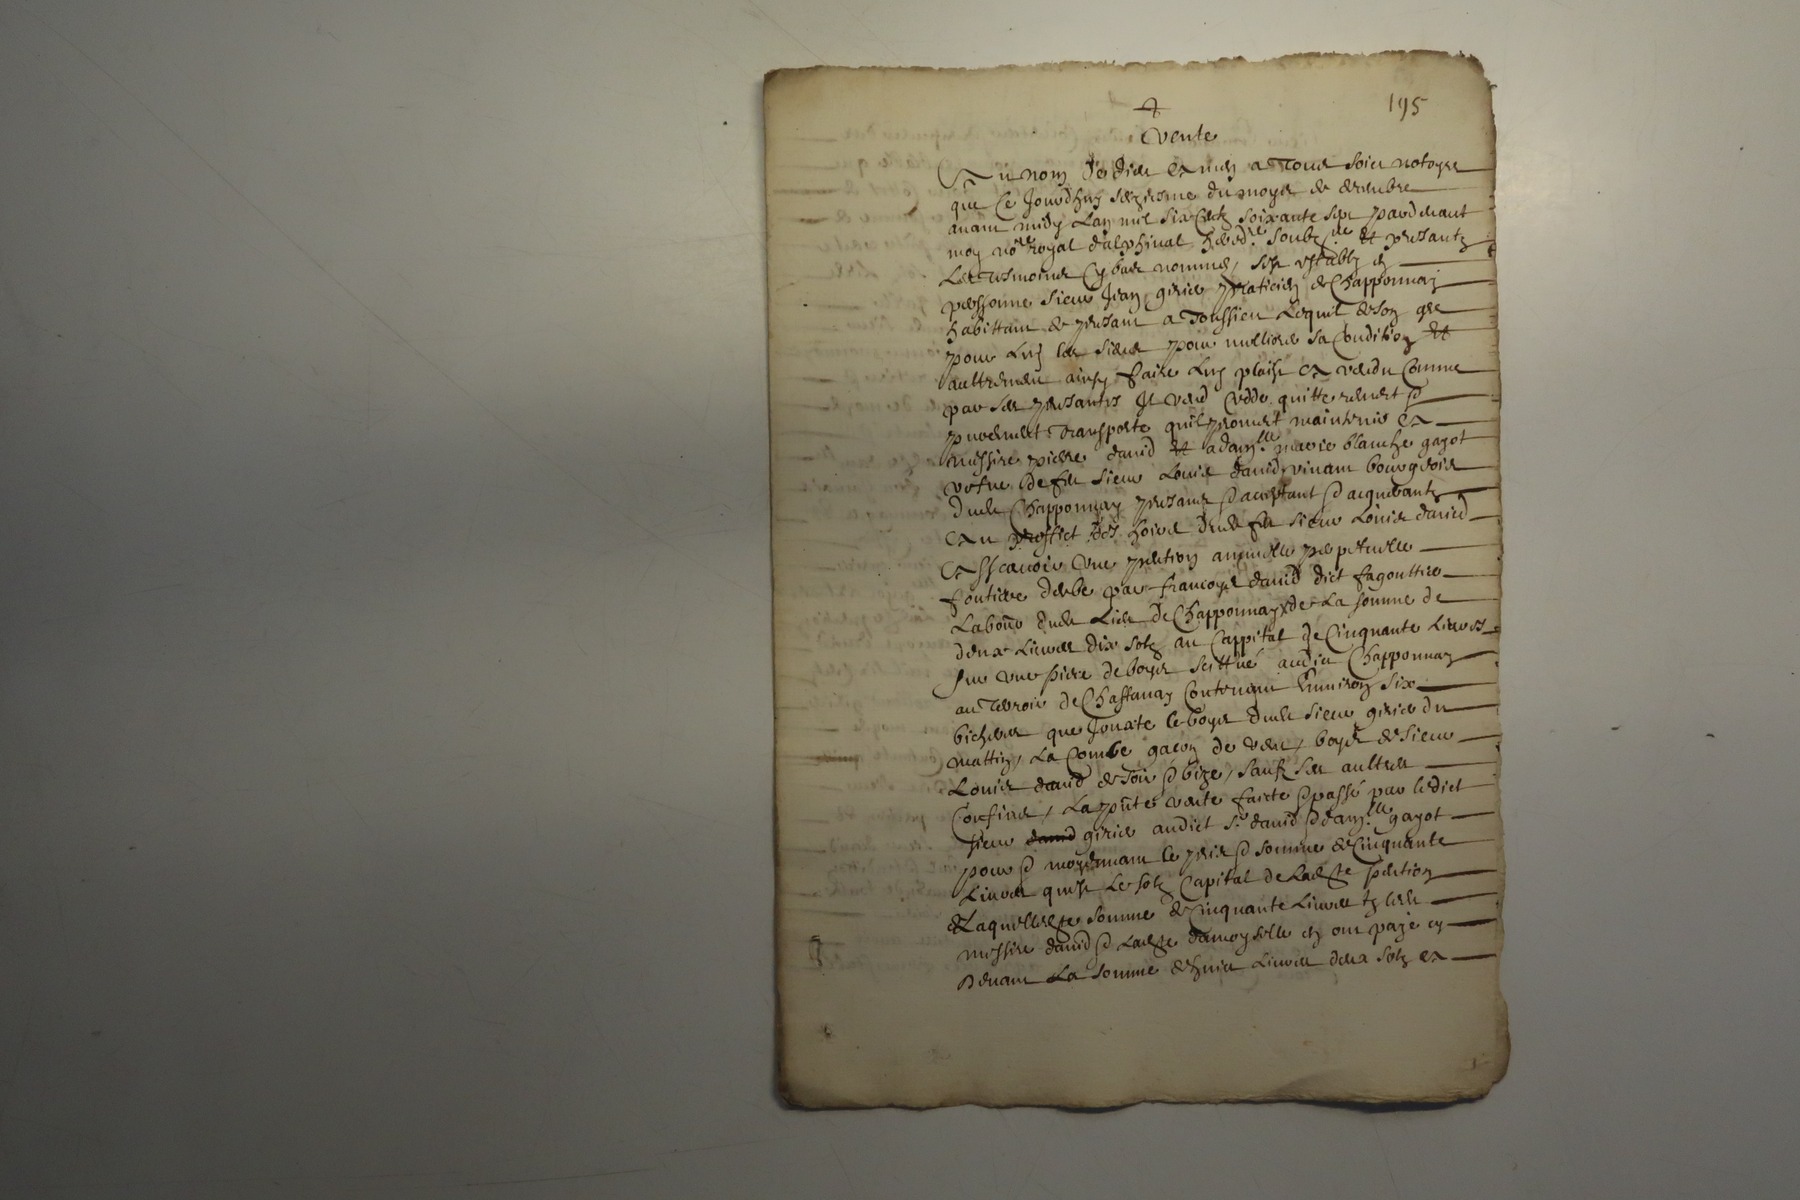 195
Vente
Au nom de dieu amen a Tous soict notoyre
que ce Jourdhuy seziesme du moys de decembre
avant midy Lan mil six Centz soixante sept pardevant
moy no.re royal dalphinal hered.re soubz.né et presantz
Les tesmoins Cy bas nommes / sest establÿ en
personne sieur Jean girier praticien de Chapponnay
habittant de presant a Toussieu Lequel de son gre
pour Luy les siens pour mellieur sa Condition et
aultrement ainsy faire luy plaist a vendu Comme
par ses presantes Il vend Cedde quitte remect et
purement Transporte quil promect maintenir a
messire pierre david et a dam.lle marie blanche gayot
vefve de feu sieur Louis david vivant bourgeois
dudt Chapponnay presants et acceptant et acquerantz
au proffict des hoirs dudt feu sieur Louis david
Asscavoir une pention annuelle perpetuelle
fontiere debue par francoys david dict fagouttier
Labour. dudt Lieu de Chapponnay de La somme de
deux Livres dix solz au Cappital de Cinquante Livres
sur une piece de boys scittué audict Chapponnay
au Terroir de Chassanay Contenant Environ six
bicherees que Jouxte le boys dudt sieur girier du
mattin / La Combe de vent / boys de sieur
Louis david de soir et bize / sauf ses aultres
Confins / La pnte vente faicte et passé par ledict
sieur girier audict Sr david et dam.lle gayot
pour et moyennant le prix et somme de Cinquante
Livres quest le solz Capital de Ladte pention
de Laquelle somme de Cinquante Livres
messire david et Ladte damoyselle en ont payé cy
devant La somme de huict Livres deux solz a